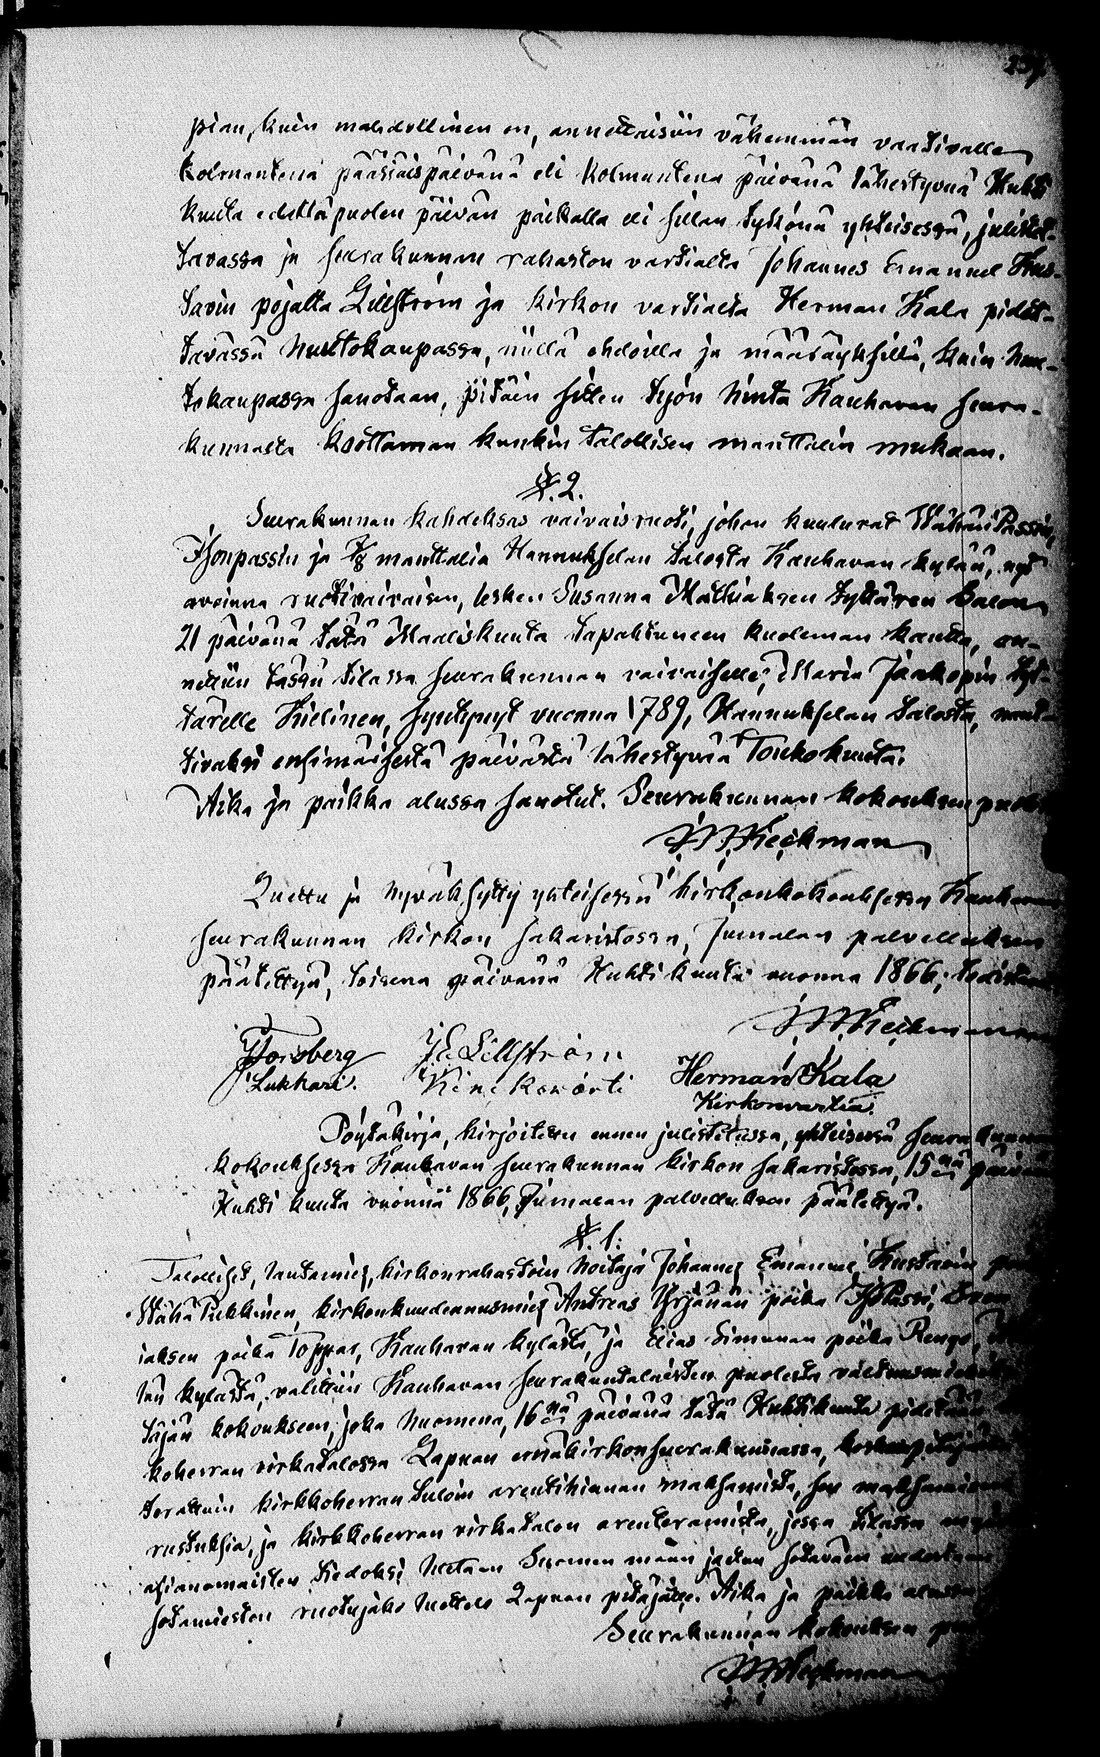 pian, kuin mahdollinen on, annettaisiin vähemmän vaativalle
kolmantena pääsiäispäivänä eli kolmantena päivänä lähestyvää Huhti
kuuta edellä puolen päivän paikalla eli sillan tykönä yhteisessä, julistet-
tavassa ja seurakunnan rahaston vartialta Johannes Emanuel Kus-
tavin pojalta Lillström ja kirkon vartialta Herman Kala pidet-
tävässä huutokaupassa, niillä ehdoilla ja määräyksillä, kuin huu-
tokaupassa sanotaan, pitäin sitten työn hinta Kauhavan seura-
kunnasta koottaman kunkin talollisen manttalin mukaan.
§. 2.
Seurakunnan kahdeksas vaivaisruoti, johon kuuluvat Wähä Passi,
Isonpassin ja manttalia Hannukselan talosta Kauhavan kylää, nyt
avoinna ruotivaivaisen, lesken Susanna Matthiaksen tyttären
21 päivänä tätä Maaliskuuta tapahtuneen kuoleman kautta, an-
nettiin tässä tilassa seurakunnan vaivaiselle, Maria Jaakopin tyt-
tärelle Kielinen, syntynyt vuonna 1789, Hannukselan talosta, naut-
tivaksi ensimäisestä päivästä lähestyvää Toukokuuta.
Aika ja paikka alussa sanotut. Seurakunnan kokouksen puolesta
Luettu ja hyväksytty yhteisessä kirkonkokouksessa Kauhavan
seurakunnan kirkon sakaristossa, Jumalan palvelluksen
päätettyä, toisena päivänä Huhtikuuta vuonna 1866; todistavat
Forsberg J E Lillström
Lukkari. Herman Kala
Kirkonvartia.
Pöytäkirja, kirjoitettu ennen julistetussa, yhteisessä seurakunnan
kokouksessa Kauhavan seurakunnan kirkon sakaristossa, 15nä päivänä
Huhti kuuta vuonna 1866, Jumalan palvelluksen päätettyä.
§. 1.
Talolliset, lautamies, kirkonrahastoin hoitaja Johannes Emanuel Kustavin
Wähä Pukkinen, kirkonkuudennusmies Andreas Yrjänän poika
iaksen poika Toppar, Kauhavan kylästä, ja Elias Simunan poika Rengo,
kylästä, valittiin Kauhavan seurakuntalaisten puolesta valtuusmiehiksi
täjän kokoukseen, joka huomena, 16nä päivänä tätä Huhtikuuta pidetään
koherran virkatalossa Lapuan emäkirkonseurakunnassa, koskeva
kirkkoherran tuloin arentihinnan maksamista, sen maksamisen
rustuksia, ja kirkkoherran virkatalon arenteeramista, jossa tilassa
asianomaisten tiedoksi luetaan Suomen maan jaetun sotaväen
sotamiesten ruotujako luettelo Lapuan pitäjälle. Aika ja paikka alussa
Seurakunnan kokouksen